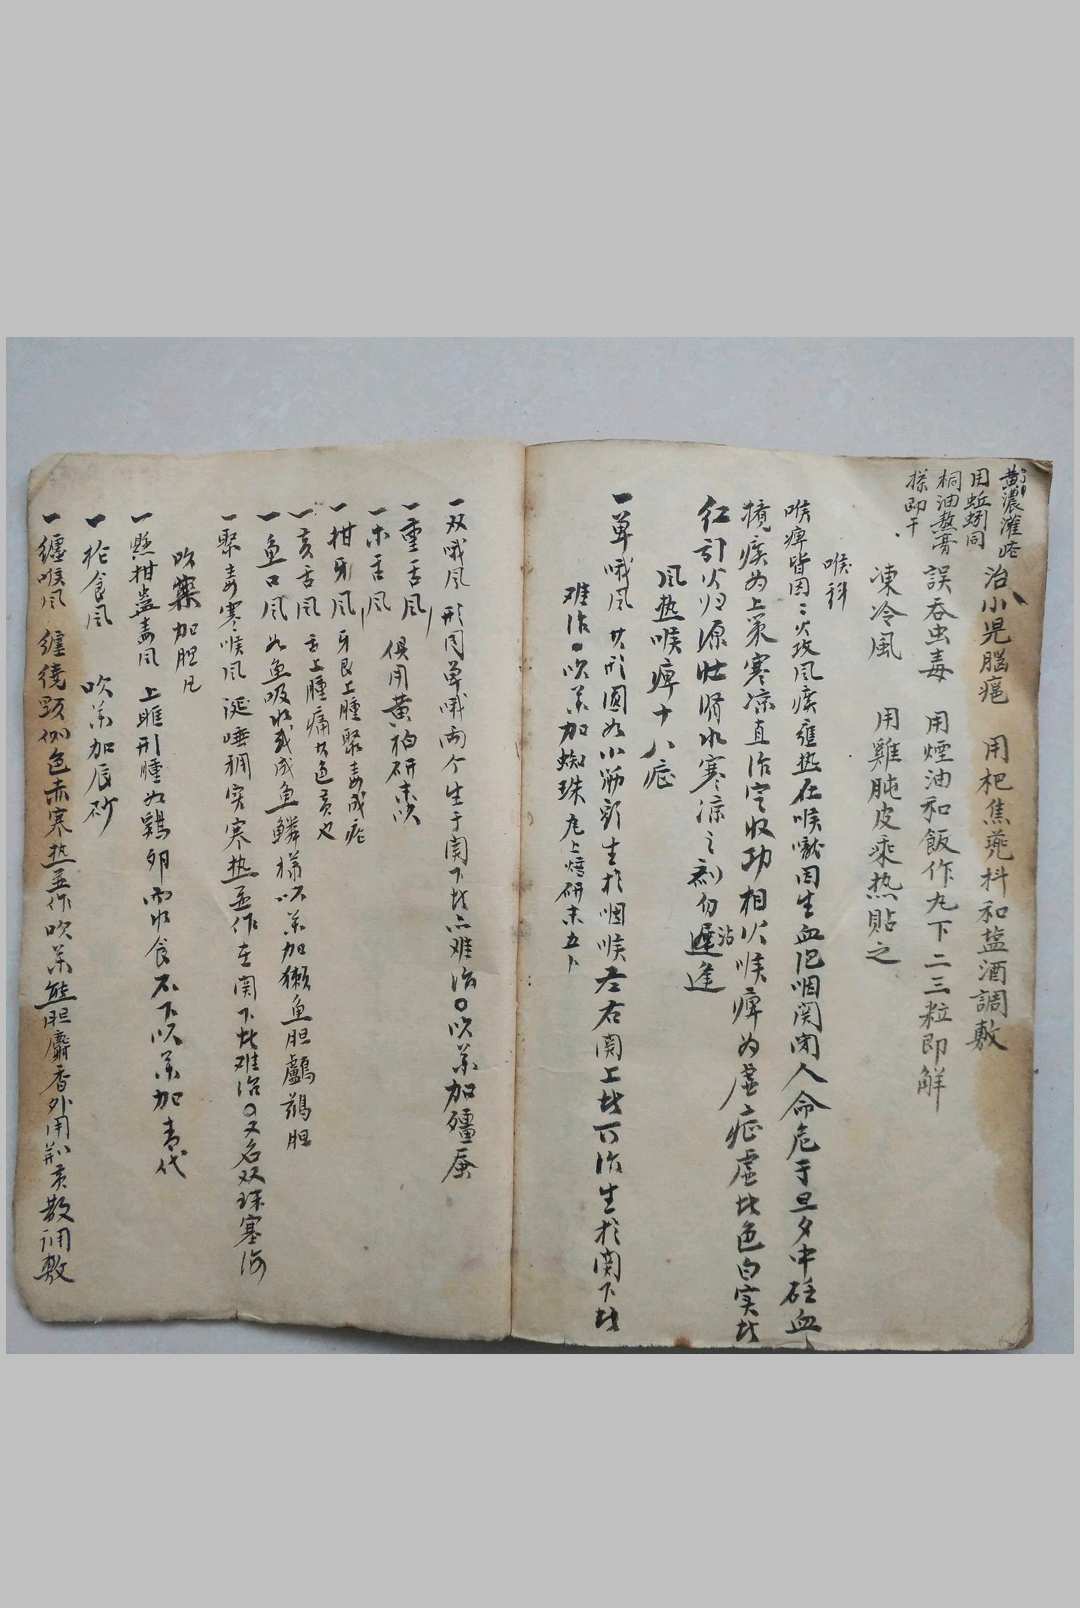 黄濃灌症
用蚯蚓同
桐油熬膏
搽即干
治小児腦疤 用杷焦蔸料和盐酒調敷
誤吞虫毒 用煙油和飯作丸下二三粒即解
凍冷風 用雞肫皮乘热貼之
喉科
喉痺皆因二火攻風痰壅热在喉嚨因生血㔾咽関闭人命危于旦夕中砭血
痰为上策寒凉直治定收功相火喉痺为虚症虚者色白实者
红引火归源壮肾水寒凉之剂勿沾逢
風热喉痺十八症
一單哦风 其形圆如小筯头生於咽喉左右関上者可治生於関下者
难治○吹药加蜘珠瓦上焙研末五卜
一双哦风 形同單哦两个生于関下者亦难治○吹药加殭蚕
一重舌风
一木舌风 俱用黄柏研末吹
一柑牙风 牙艮上腫聚毒成疮
一亥舌风 舌上腫痛其色黄也
一鱼口风 如鱼吸水或成鱼鱗様吹药加獺鱼胆鸕鶿胆
一聚毒寒喉风 涎唾稠实寒热并作在関下者难治○又名双珠塞海
吹藥加胆凡
一照柑盖毒风 上腄形腫如鷄卵而水食不下吹药加青代
一松食风 吹药加辰砂
一纏喉风 纏繞頸似色赤寒热并作吹药熊胆麝香外用荊黄散调敷